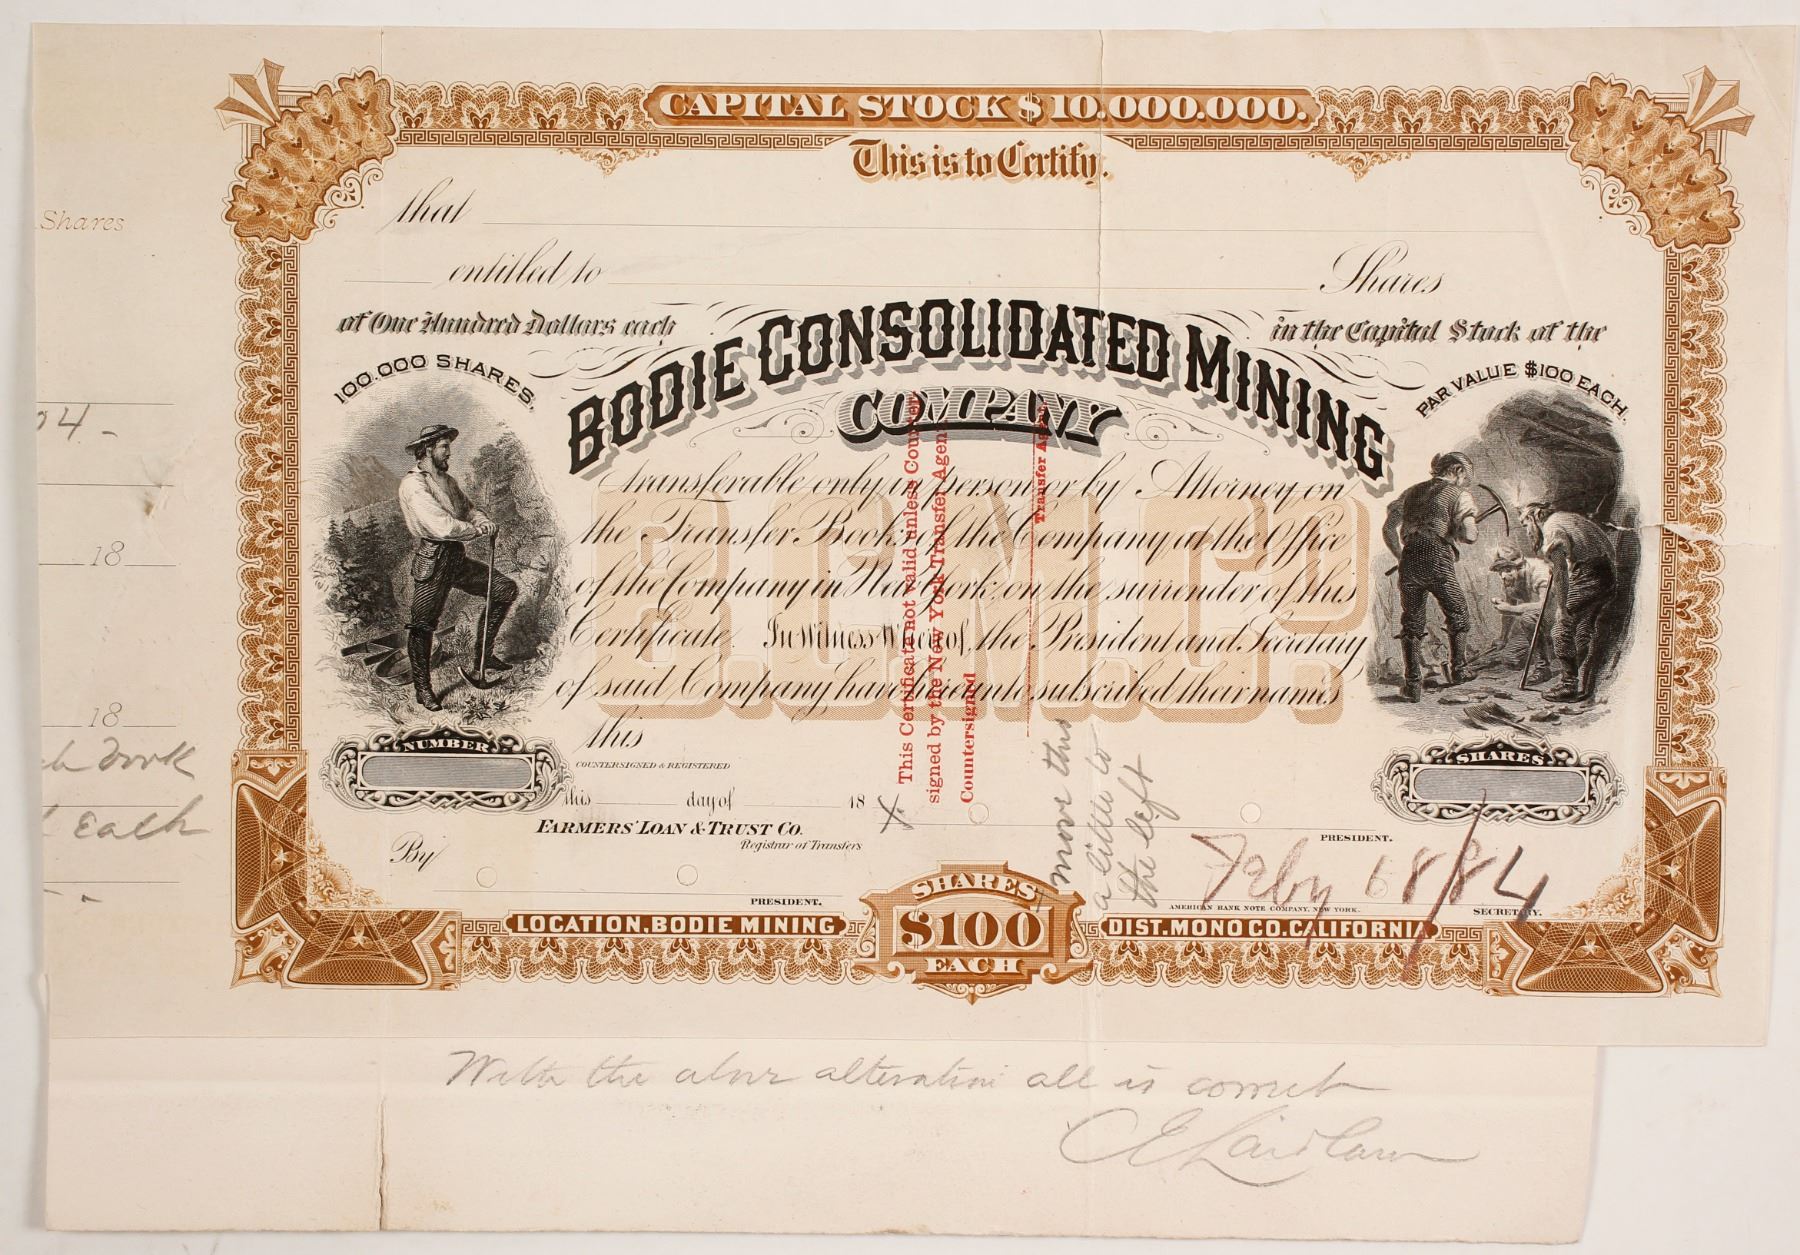 CAPITAL STOCK $10.000.000.
This is to Certify.
that
entitled to Shares
of One Hundred Dollars each in the Capital Stock of the
100.000 SHARES.
PAR VALUE $100 EACH.
BODIE CONSOLIDATED MINING
COMPANY
B.C.M.Co.
transferable only in person or by Attorney on
the Transfer Books of the Company at the Office
of the Company in New York, on the surrender of this
Certificate. In Witness Whereof, the President and Secretary
of said Company have hereunto subscribed their names
this
NUMBER
SHARES
COUNTERSIGNED & REGISTERED
this day of 18
FARMERS' LOAN & TRUST CO.
Registrar of Transfers
By
PRESIDENT.
PRESIDENT.
AMERICAN BANK NOTE COMPANY, NEW YORK.
SECRETARY.
SHARES
$100
EACH
LOCATION, BODIE MINING
DIST. MONO CO. CALIFORNIA
This Certificate not valid unless Counter
signed by the New York Transfer Agent.
Countersigned
Transfer Agent
X
move this
a little to
the left
Feby 6 8/84
Shares
04 -
18
18
work
Each
With the above alteration all is correct
C E Laidlaw